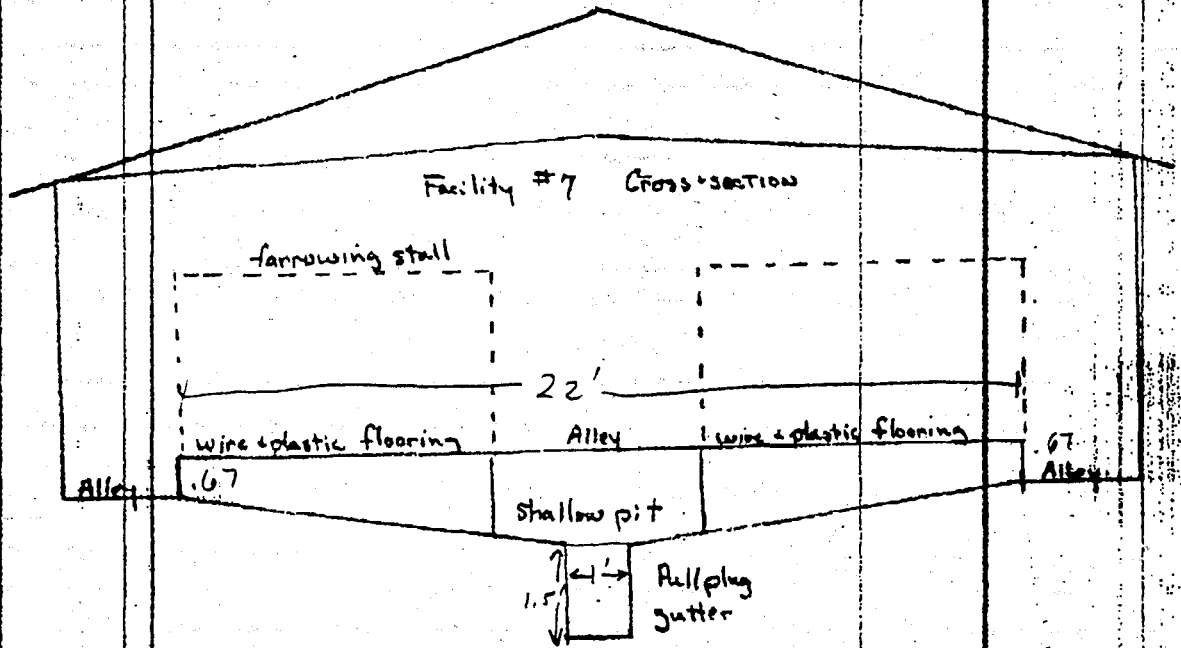 Facility #7 Cross-section
farrowing stall
22'
wire + plastic flooring
Alley
wire + plastic flooring
.67
Alley
.67
Alley
Shallow pit
1'
1.5'
Pull plug
gutter